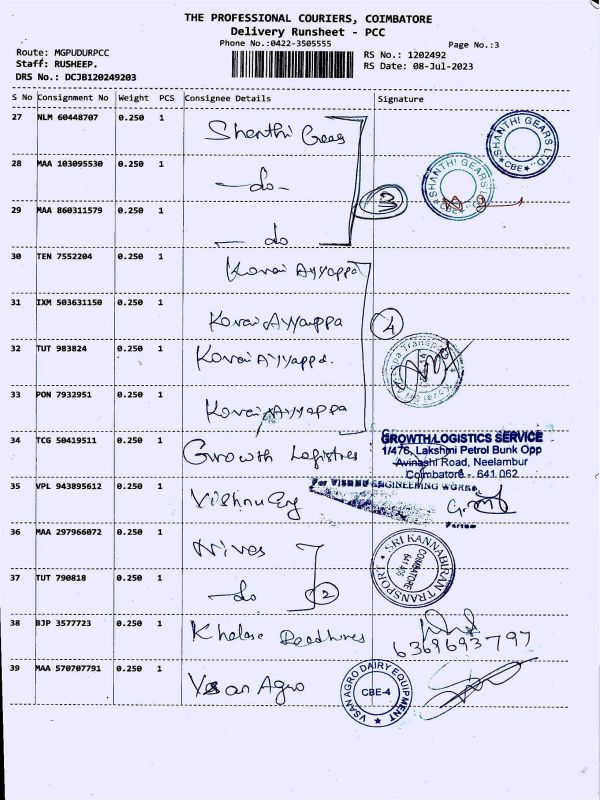 THE PROFESSIONAL COURIERS, COIMBATORE
Delivery Runsheet - PCC
Phone No.:0422-3505555
Page No.:3
Route: MGPUDURPCC
Staff: RUSHEEP.
DRS No.: DCJB120249203
RS No.: 1202492
RS Date: 08-Jul-2023
S No Consignment No Weight PCS Consignee Details Signature
27 NLM 60448707 0.250 1 Shanthi Gears
SHANTHI GEARS LTD CBE
28 MAA 103095530 0.250 1 -do-
SHANTHI GEARS LTD CBE
3
29 MAA 860311579 0.250 1 - do
30 TEN 7552204 0.250 1 Kovai Ayyappa
31 IXM 503631150 0.250 1 Kovai Ayyappa
4
32 TUT 983824 0.250 1 Kovai Ayyappa.
33 PON 7932951 0.250 1 Kovai Ayyappa
34 TCG 50419511 0.250 1 Growth Logistics
GROWTH LOGISTICS SERVICE
1/476, Lakshmi Petrol Bunk Opp
Avinashi Road, Neelambur
Coimbatore - 641 062
35 VPL 943895612 0.250 1 Vishnu Eng
For VISHNU ENGINEERING WORKS
Partner
36 MAA 297966072 0.250 1
SRI KANNABIRAN TRANSPORT
COIMBATORE
37 TUT 790818 0.250 1 -do
2
38 BJP 3577723 0.250 1
6369693797
39 MAA 570707791 0.250 1 Vsan Agro
VSAN AGRO DAIRY EQUIPMENT
CBE-4